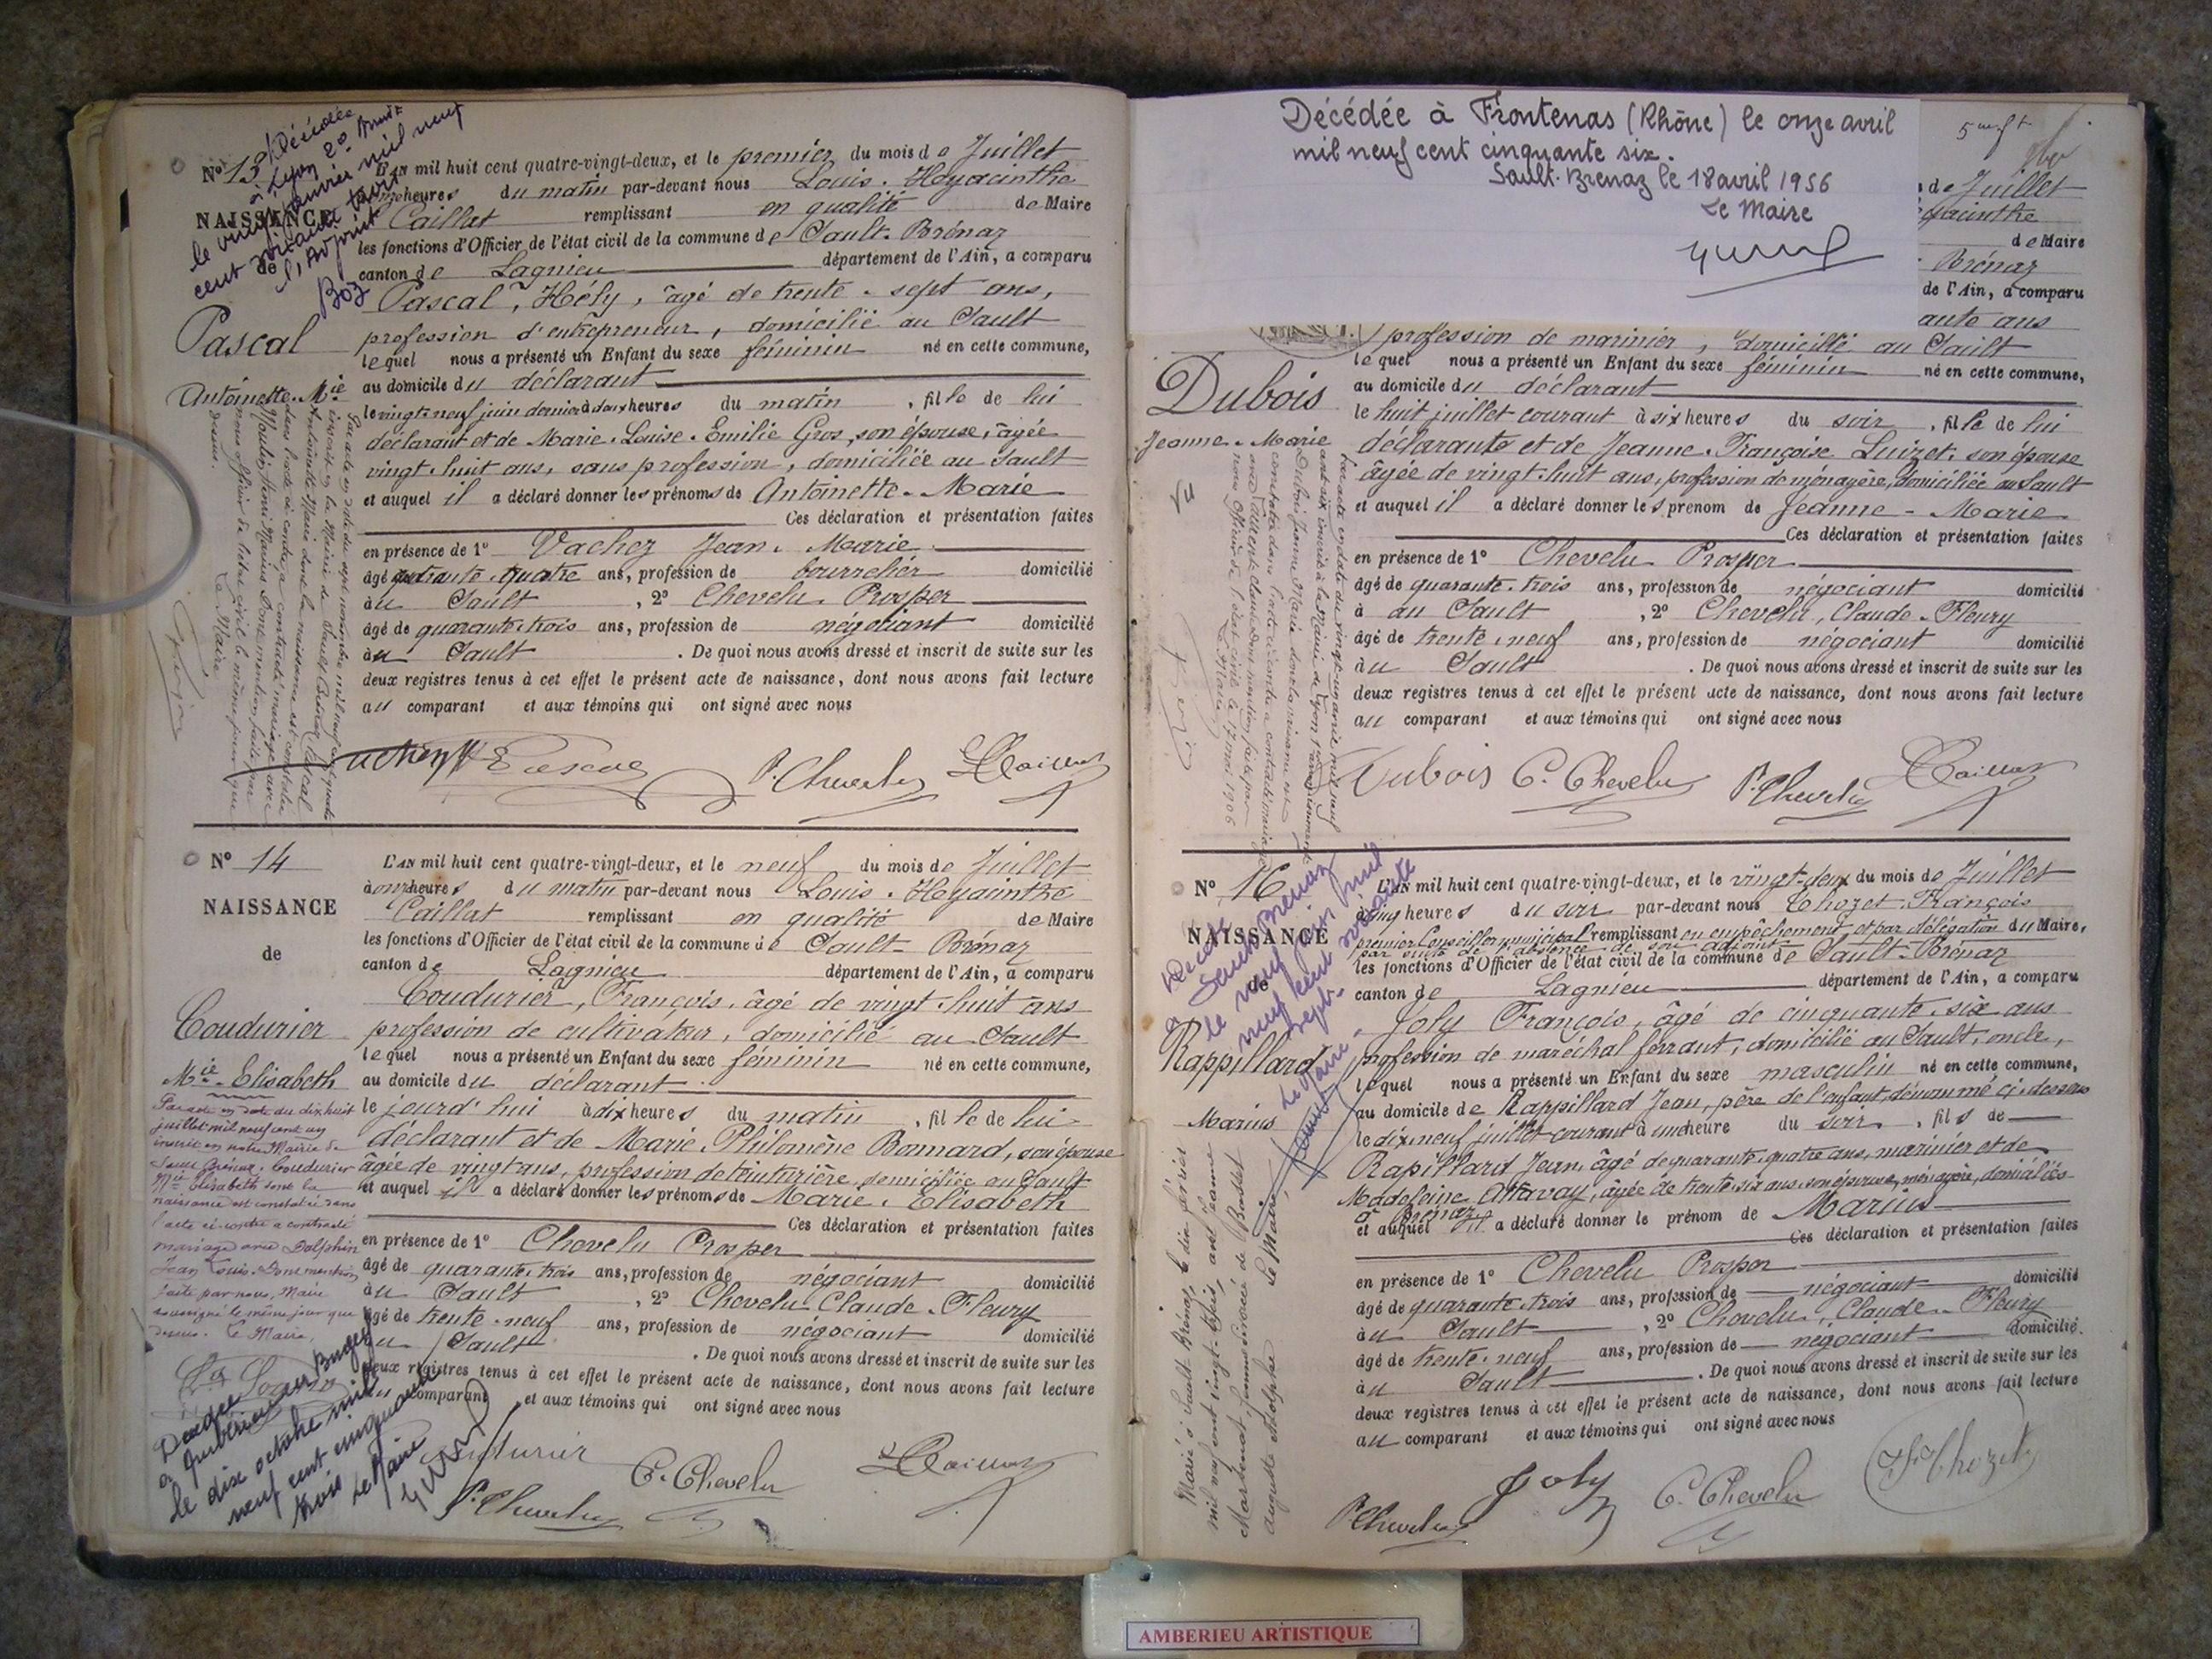 Nº 13
NAISSANCE
de
Pascal
Antoinette. Mie
Décédée
à Lyon 2º
le vingt janvier mil neuf
cent soixante
l'Adjoint
L'AN mil huit cent quatre-vingt-deux, et le premier du mois de Juillet
heures du matin par-devant nous Louis. Hyacinthe
Caillat remplissant en qualité de Maire
les fonctions d'Officier de l'état civil de la commune de Sault-Brénaz
canton de Lagnieu département de l'Ain, a comparu
Pascal, Hély, âgé de trente-sept ans,
profession d'entrepreneur, domicilié au Sault
lequel nous a présenté un Enfant du sexe féminin né en cette commune,
au domicile du déclarant
le vingt-neuf juin dernier à deux heures du matin, fille de lui
déclarant et de Marie. Louise. Emilie Gros, son épouse, âgée
vingt-huit ans, sans profession, domiciliée au Sault
et auquel il a déclaré donner les prénoms de Antoinette-Marie
Ces déclaration et présentation faites
en présence de 1º Vachez Jean-Marie
âgé de trente-quatre ans, profession de bourrelier domicilié
au Sault, 2º Chevelu Prosper
âgé de quarante-trois ans, profession de négociant domicilié
au Sault. De quoi nous avons dressé et inscrit de suite sur les
deux registres tenus à cet effet le présent acte de naissance, dont nous avons fait lecture
au comparant et aux témoins qui ont signé avec nous
P. Chevelu
L Caillat
Nº 14
NAISSANCE
de
Coudurier
Mie-Elisabeth
Par acte en date du dix huit
juillet mil neuf cent un
inscrit en notre Mairie de
Sault Brénaz. Coudurier
Mie Elisabeth dont la
naissance est constatée dans
l'acte ci-contre a contracté
mariage avec Dolphin
Jean Louis. Dont mention
faite par nous, Maire
soussigné le même jour que
dessus. Le Maire,
Décédée
à Ambérieu en Bugey
le dix octobre mil
neuf cent cinquante
trois
Le Maire
L'AN mil huit cent quatre-vingt-deux, et le neuf du mois de Juillet
à onze heures du matin par-devant nous Louis. Hyacinthe
Caillat remplissant en qualité de Maire
les fonctions d'Officier de l'état civil de la commune de Sault-Brénaz
canton de Lagnieu département de l'Ain, a comparu
Coudurier, François, âgé de vingt-huit ans
profession de cultivateur, domicilié au Sault
lequel nous a présenté un Enfant du sexe féminin né en cette commune,
au domicile du déclarant
le jourd'hui à dix heures du matin, fille de lui
déclarant et de Marie Philomène Bonnard, son épouse
âgée de vingt ans, profession de teinturière, domiciliée au Sault
et auquel il a déclaré donner les prénoms de Marie. Elisabeth
Ces déclaration et présentation faites
en présence de 1º Chevelu Prosper
âgé de quarante-trois ans, profession de négociant domicilié
au Sault, 2º Chevelu Claude-Fleury
âgé de trente-neuf ans, profession de négociant domicilié
au Sault. De quoi nous avons dressé et inscrit de suite sur les
deux registres tenus à cet effet le présent acte de naissance, dont nous avons fait lecture
au comparant et aux témoins qui ont signé avec nous
C. Chevelu
L Caillat
P. Chevelu
Décédée à Frontenas (Rhône) le onze avril
mil neuf cent cinquante six.
Sault-Brenaz le 18 avril 1956
Le Maire
de Juillet
de Maire
Brénaz
de l'Ain, a comparu
ante ans
Dubois
Jeanne-Marie
Vu
profession de marinier, domicilié au Sault
lequel nous a présenté un Enfant du sexe féminin né en cette commune,
au domicile du déclarant
le huit juillet courant à six heures du soir, fille de lui
déclarante et de Jeanne. Françoise Luizet, son épouse
âgée de vingt-huit ans, profession de ménagère, domiciliée au Sault
et auquel il a déclaré donner les prenom de Jeanne-Marie
Ces déclaration et présentation faites
en présence de 1º Chevelu Prosper
âgé de quarante-trois ans, profession de négociant domicilié
à au Sault, 2º Chevelu, Claude-Fleury
âgé de trente-neuf ans, profession de négociant domicilié
au Sault. De quoi nous avons dressé et inscrit de suite sur les
deux registres tenus à cet effet le présent acte de naissance, dont nous avons fait lecture
au comparant et aux témoins qui ont signé avec nous
Dubois
C. Chevelu
P. Chevelu
L Caillat
Nº 16
NAISSANCE
de
Rappillard
Marius
Décédé
à Sault Brénaz
le neuf juin mil
neuf cent soixante
sept.
Le Maire.
Marié à Sault-Brénaz, le dix février
mil neuf cent vingt-trois, avec Jeanne
Marbenat, femme divorcée de
Auguste Adolphe Le Maire,
L'AN mil huit cent quatre-vingt-deux, et le vingt-deux du mois de Juillet
à cinq heures du soir par-devant nous Chozet François
premier Conseiller municipal remplissant en empêchement et par délégation du Maire,
par suite de l'absence de son adjoint
les fonctions d'Officier de l'état civil de la commune de Sault-Brénaz
canton de Lagnieu département de l'Ain, a comparu
Joly François, âgé de cinquante-six ans
profession de maréchal ferrant, domicilié au Sault, oncle,
lequel nous a présenté un Enfant du sexe masculin né en cette commune,
au domicile de Rappillard Jean, père de l'enfant, dénommé ci-dessous
le dix-neuf juillet courant à une heure du soir, fils de
Rapillard Jean, âgé de quarante-quatre ans, marinier et de
Madeleine Attavay, âgée de trente-six ans son épouse, ménagère, domiciliés
à Brénaz
et auquel il a déclaré donner le prénom de Marius
Ces déclaration et présentation faites
en présence de 1º Chevelu Prosper
âgé de quarante-trois ans, profession de négociant domicilié
au Sault, 2º Chevelu, Claude-Fleury
âgé de trente-neuf ans, profession de négociant domicilié
au Sault. De quoi nous avons dressé et inscrit de suite sur les
deux registres tenus à cet effet le présent acte de naissance, dont nous avons fait lecture
au comparant et aux témoins qui ont signé avec nous
P. Chevelu
Joly
C. Chevelu
F. Chozet
AMBERIEU ARTISTIQUE